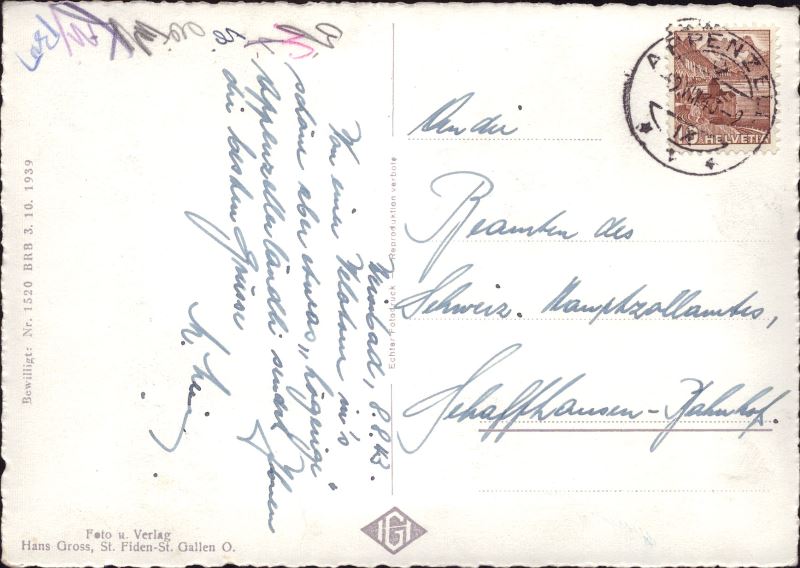 Weissbad, 8.8.43.
Von einer Velotour in's
schöne aber etwas „högerige"
Appenzellerländli sendet Ihnen
die besten Grüsse
An die
Beamten des
Schweiz. Hauptzollamtes,
Schaffhausen-Bahnhof.
APPENZELL
HELVETIA
Echter Fotodruck — Reproduktion verboten
Bewilligt: Nr. 1520 BRB 3. 10. 1939
Foto u. Verlag
Hans Gross, St. Fiden-St. Gallen O.
HG